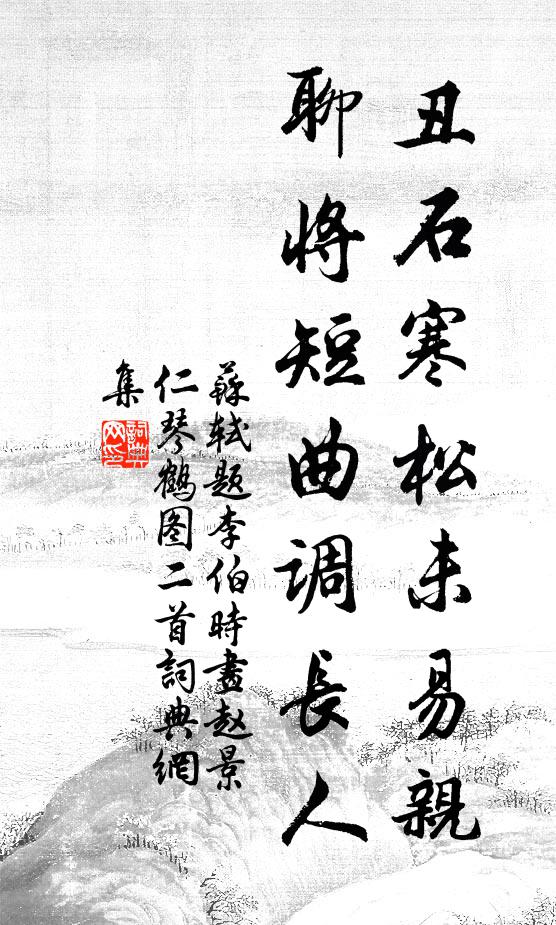 丑石寒松未易親
聊将短曲调長人
蘇轼题李伯時畫赵景
仁琴鹤图二首詞典網
集